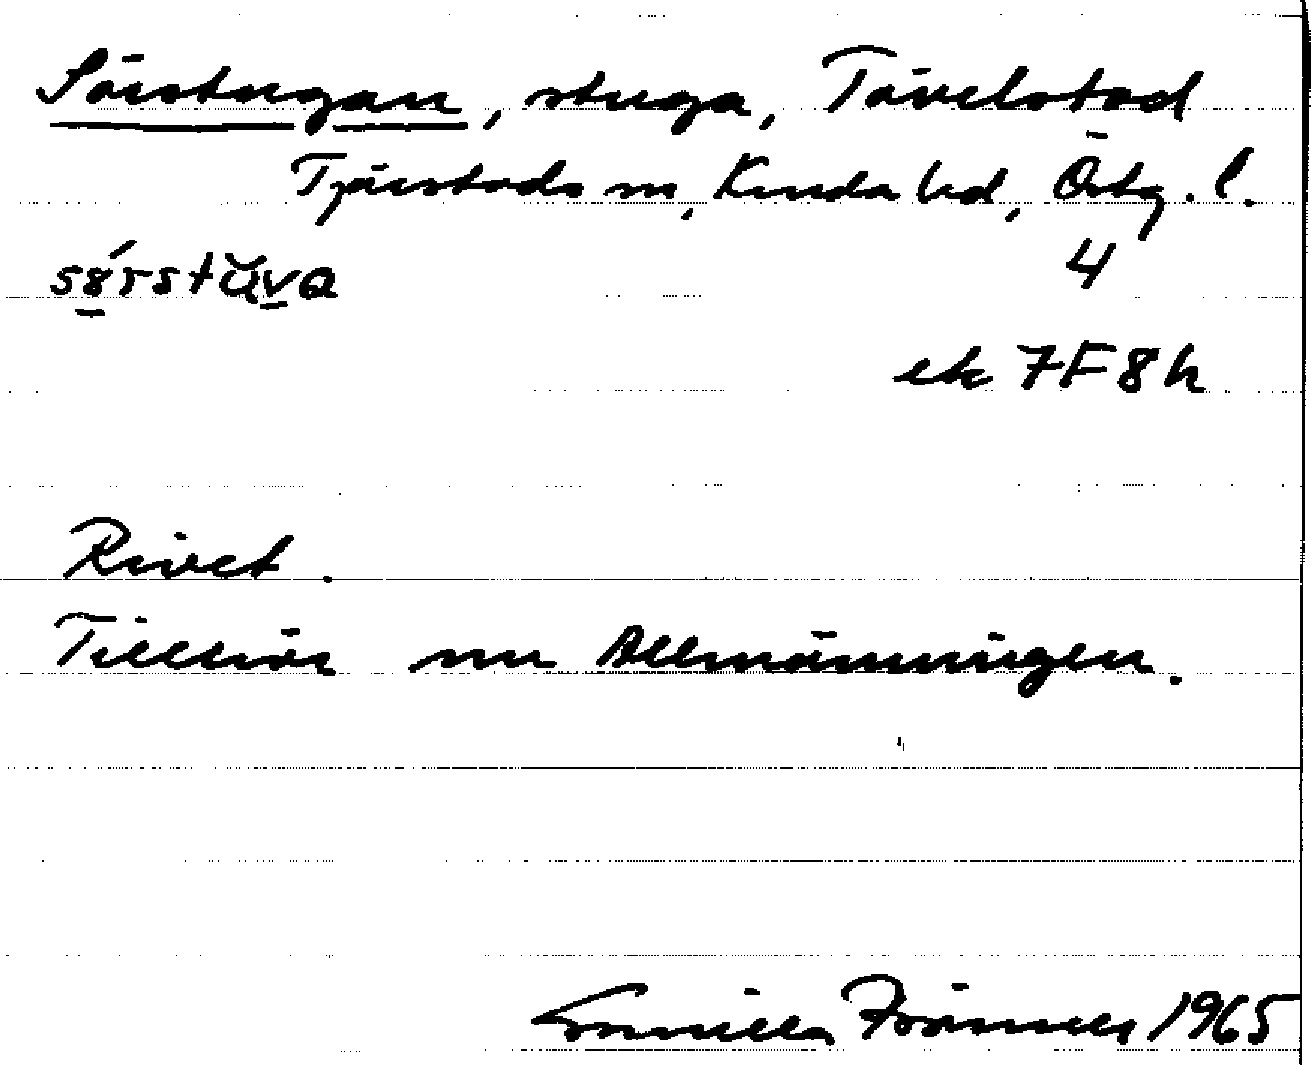 Sörstugan, stuga, Tävelstad
Tjärstads sn, Kinda hd, Östg. l.
sörstŭva 4
ek 7F8h
Rivet.
Tillhör nu Allmänningen.
Gunilla 1965